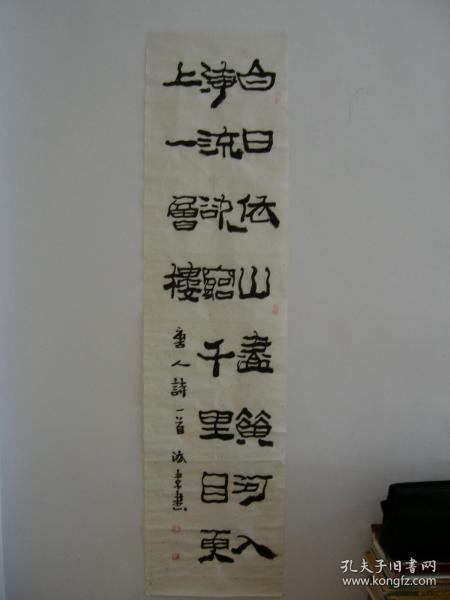 白日依山盡黃河入
海流欲窮千里目更
上一層樓
唐人詩一首
孔夫子旧书网
www.kongfz.com